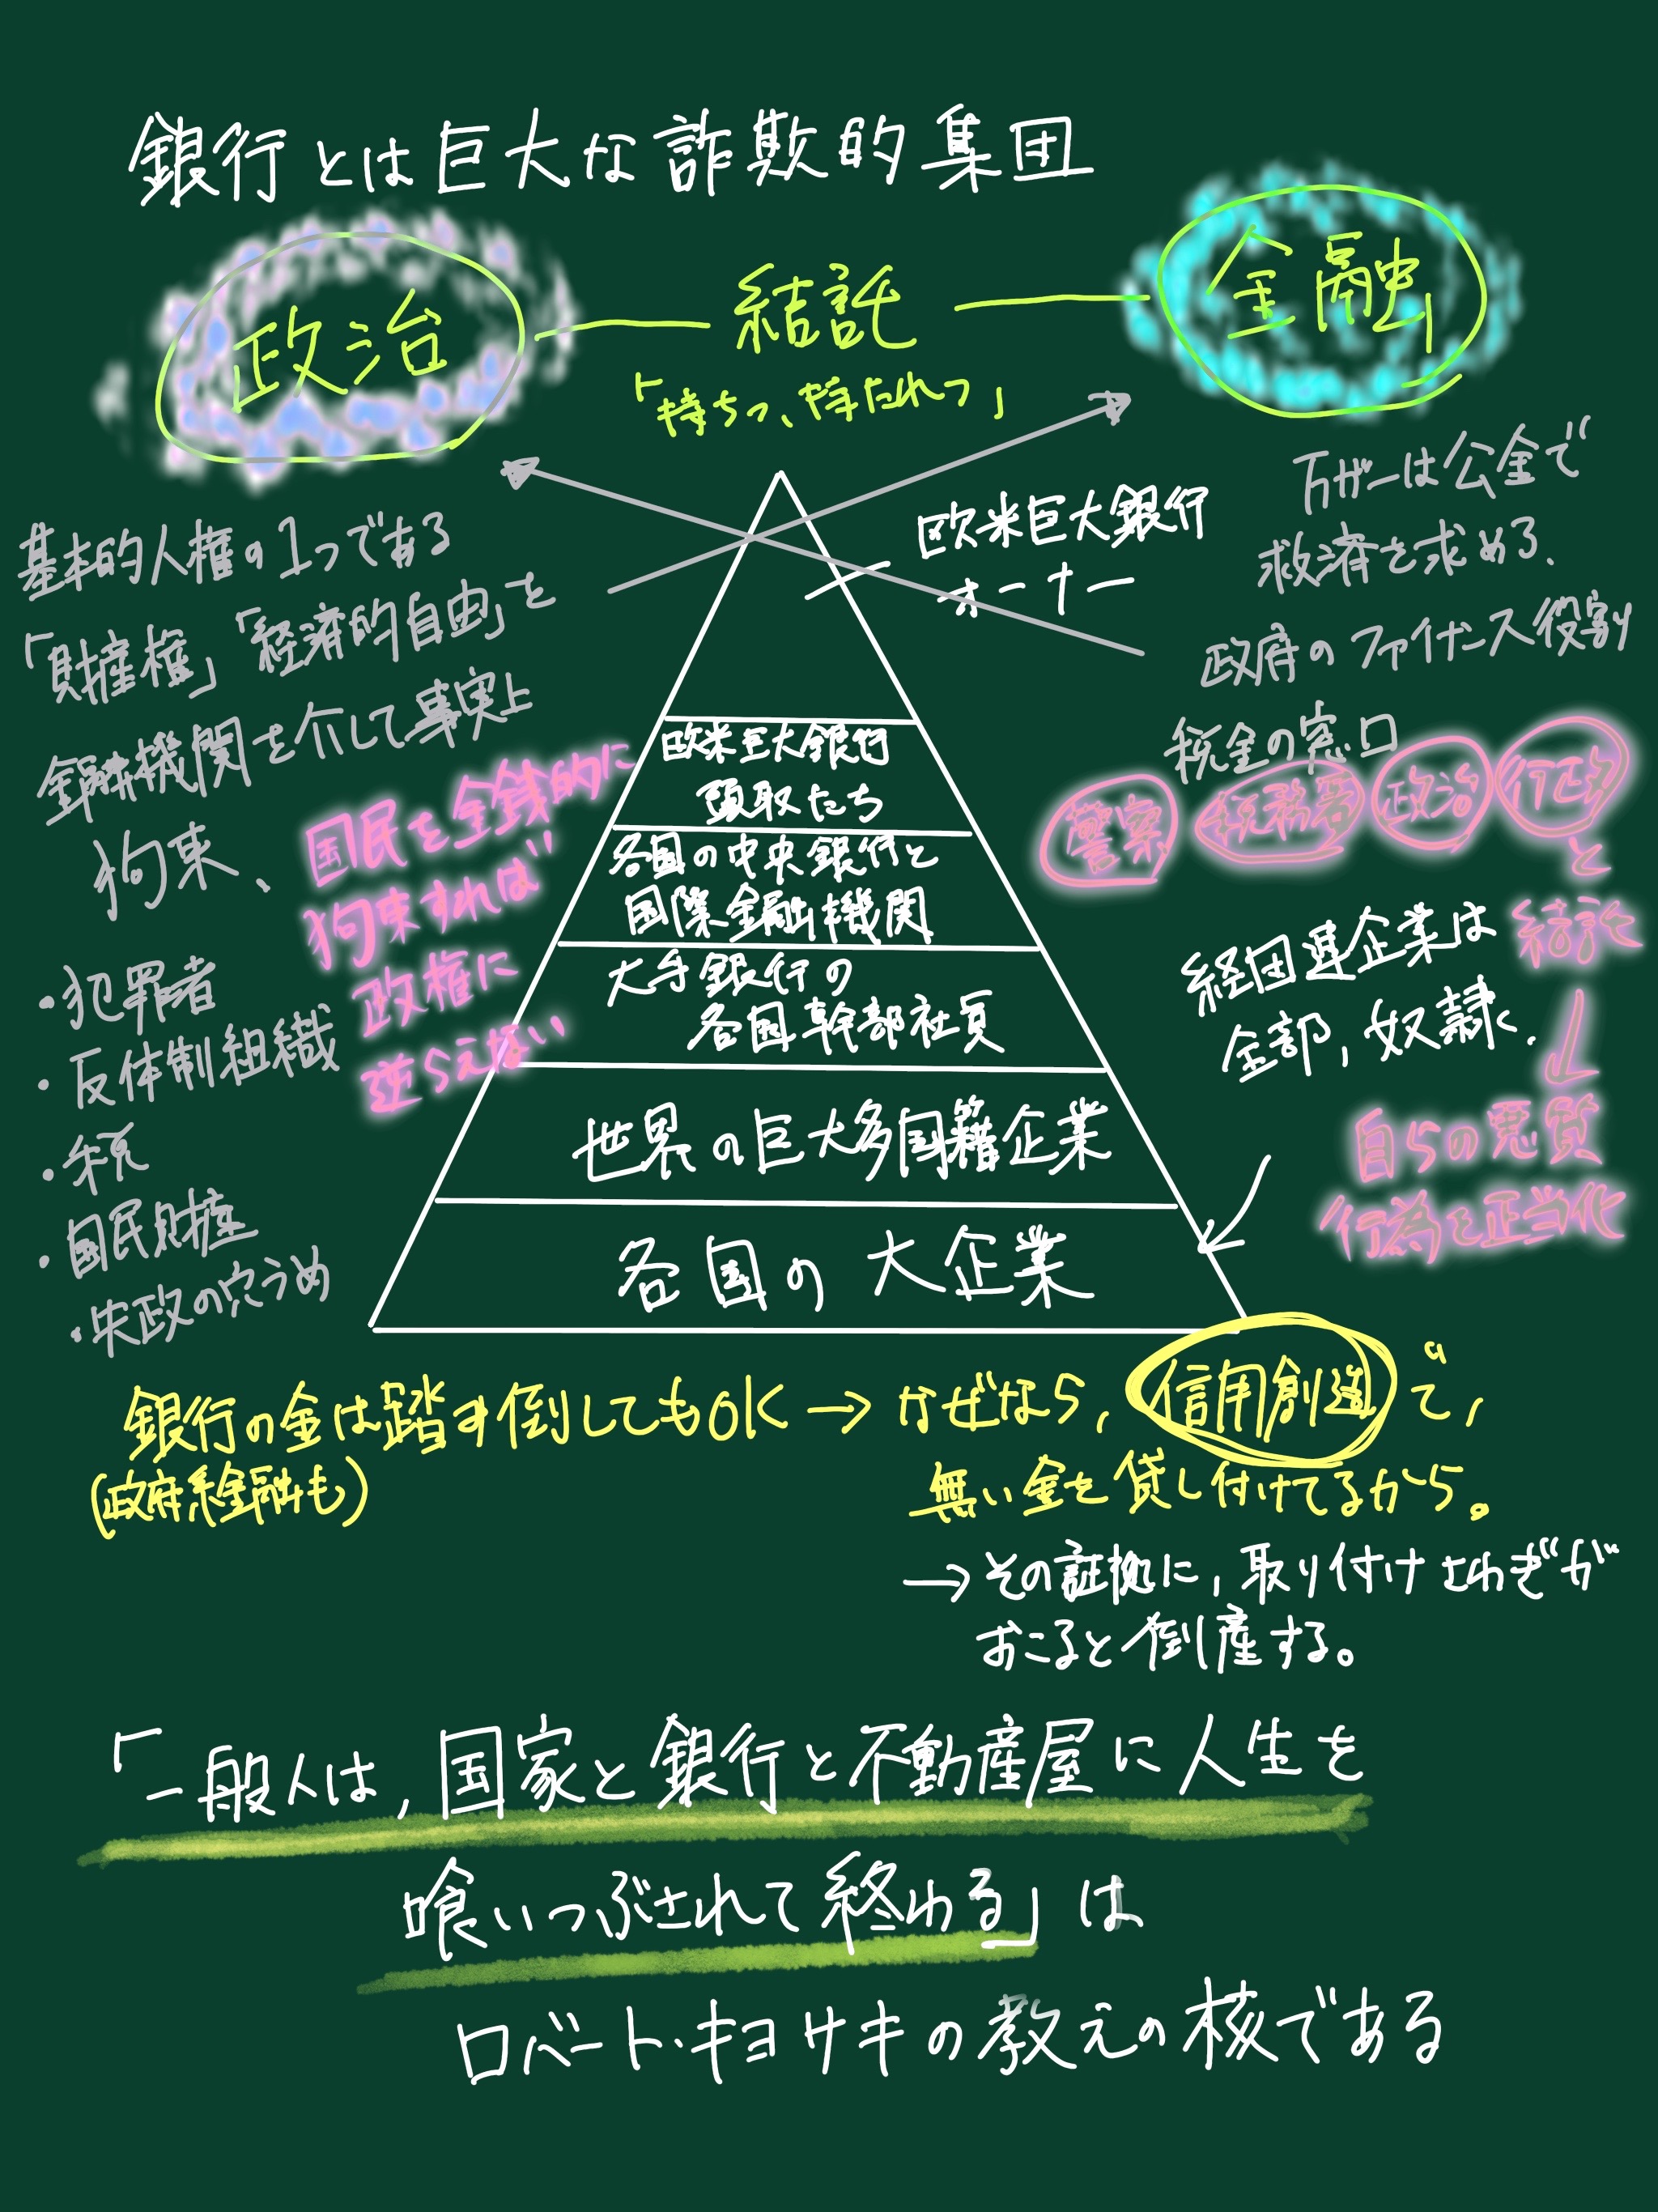 銀行とは巨大な詐欺的集団
政治
結託
金融
「持ちつ、持たれつ」
基本的人権の1つである
「財産権」「経済的自由」を
金融機関を介して事実上
拘束、
国民を金銭的に
拘束すれば
政権に
逆らえない
・犯罪者
・反体制組織
・税
・国民財産
・失政の穴うめ
欧米巨大銀行
オーナー
欧米巨大銀行
頭取たち
各国の中央銀行と
国際金融機関
大手銀行の
各国幹部社員
世界の巨大多国籍企業
各国の大企業
万が一は公金で
救済を求める、
政府のファイナンス役割
税金の窓口
警察 税務署 政治 行政
と
結託
↓
経団連企業は
全部、奴隷、
自らの悪質
行為を正当化
銀行の金は踏み倒してもOK→なぜなら、信用創造で、
(政府系金融も)
無い金を貸し付けてるから。
→その証拠に、取り付けさわぎが
おこると倒産する。
「一般人は、国家と銀行と不動産屋に人生を
喰いつぶされて終わる」は
ロバート・キヨサキの教えの核である